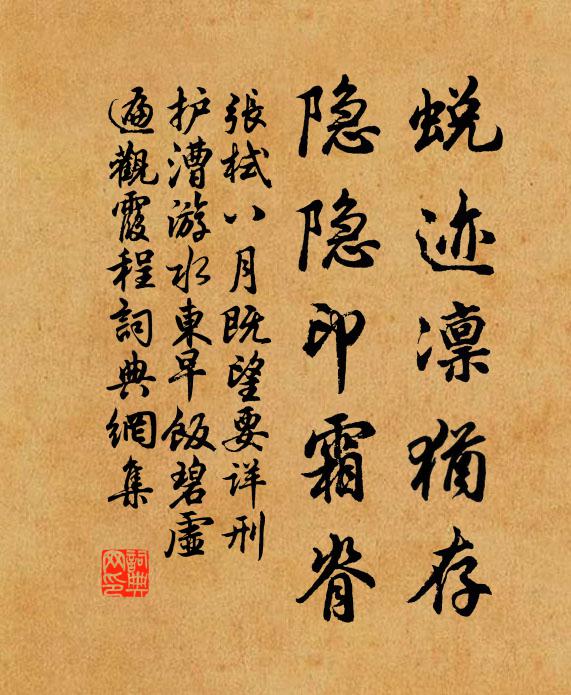 蜕迹凛猶存
隐隐印霜脊
張栻八月既望要详刑
护漕游水東早飯碧虚
遍觀霞程詞典網集
詞典网印